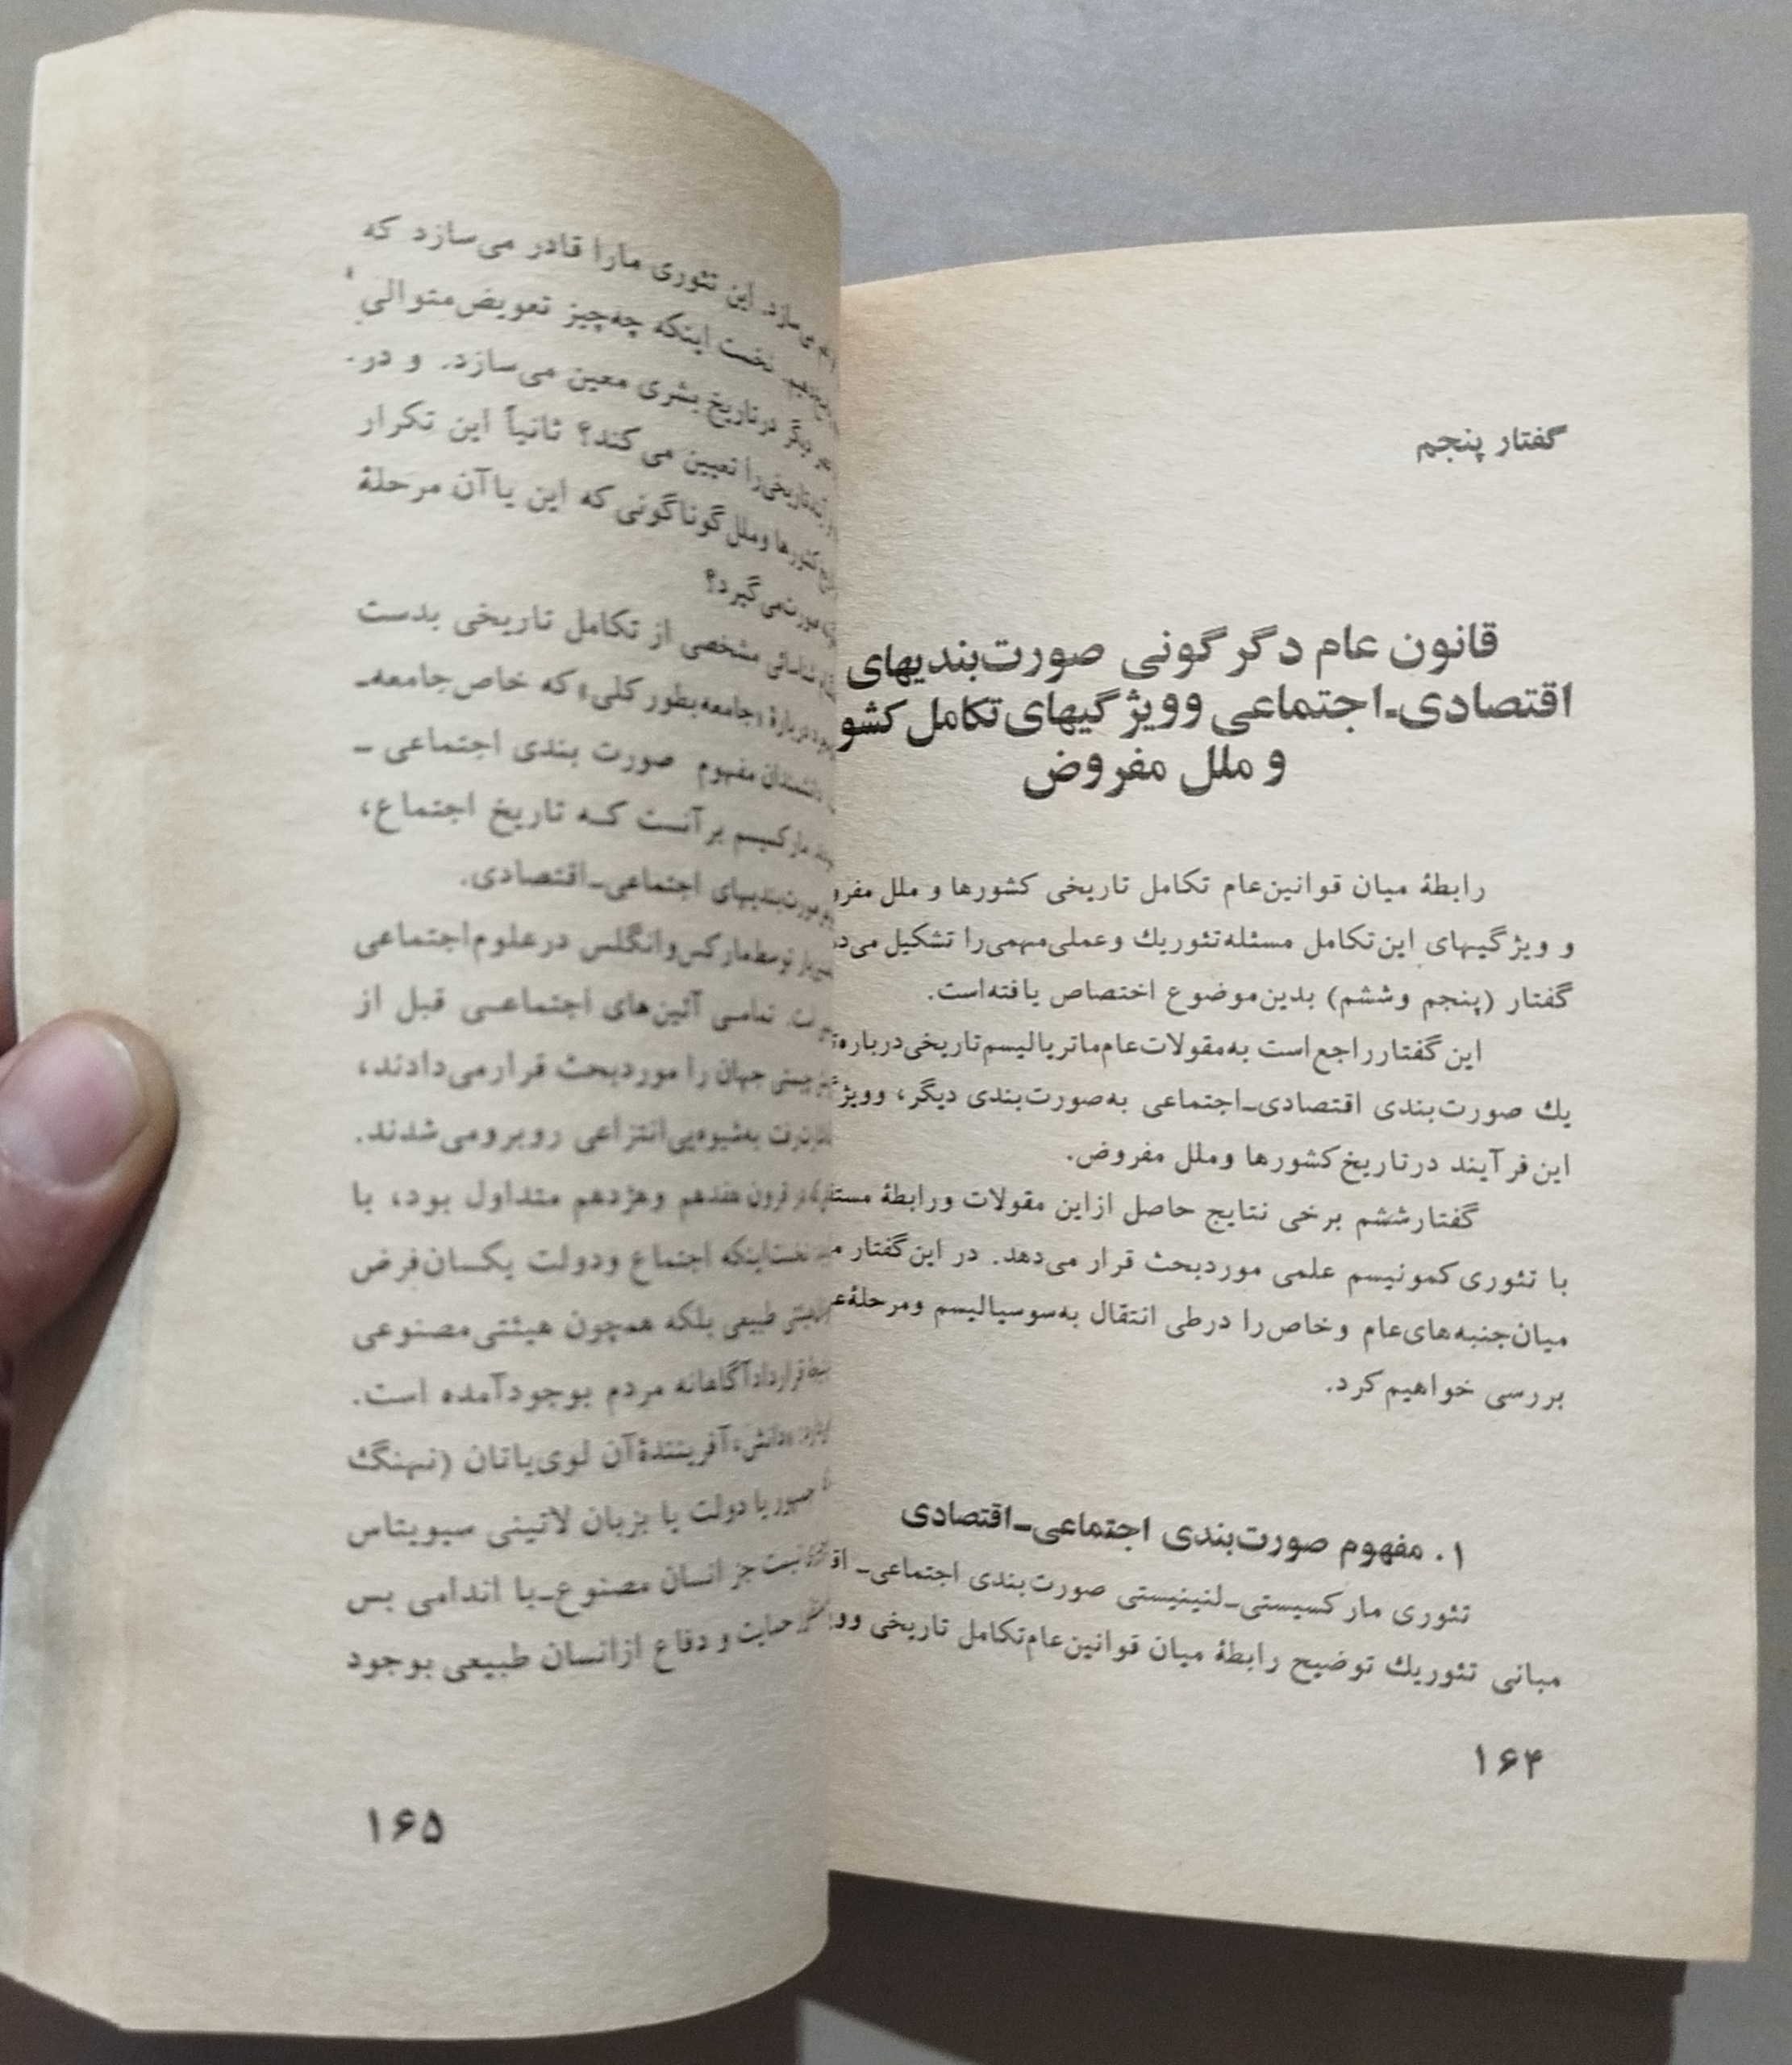 گفتار پنجم
قانون عام دگرگونی صورت‌بندیهای
اقتصادی-اجتماعی وویژگیهای تکامل
و ملل مفروض
رابطهٔ میان قوانین‌عام تکامل تاریخی کشورها و ملل
و ویژگیهای این‌تکامل مسئله‌تئوریك وعملی‌مهمی‌را تشکیل
گفتار (پنجم وششم) بدین‌موضوع اختصاص یافته‌است.
این گفتارراجع‌است به‌مقولات‌عام‌ماتریالیسم‌تاریخی‌درباره
یك صورت‌بندی اقتصادی-اجتماعی به‌صورت‌بندی دیگر،
این‌فرآیند درتاریخ‌کشورها وملل مفروض.
گفتارششم برخی نتایج حاصل ازاین مقولات ورابطهٔ
با تئوری‌کمونیسم علمی موردبحث قرار می‌دهد. در این‌گفتار
میان‌جنبه‌های‌عام وخاص‌را درطی انتقال به‌سوسیالیسم ومرحلهٔ
بررسی خواهیم‌کرد.
۱. مفهوم صورت‌بندی اجتماعی-اقتصادی
تئوری مارکسیستی-لنینیستی صورت‌بندی اجتماعی-
مبانی تئوریك توضیح رابطهٔ میان قوانین‌عام‌تکامل تاریخی
۱۶۴
می‌سازد. این تئوری مارا قادر می‌سازد که
نخست اینکه چه‌چیز تعویض‌متوالی
دیگر درتاریخ‌بشری معین می‌سازد. و در
تاریخی‌را تعیین می‌کند؟ ثانیاً این تکرار
کشورها وملل‌گوناگونی‌که این یاآن مرحلهٔ
صورت‌می‌گیرد؟
مشخصی از تکامل تاریخی بدست
دربارهٔ «جامعه‌بطورکلی» که خاص‌جامعه-
دانشمندان مفهوم صورت بندی اجتماعی -
مارکسیسم برآنست که تاریخ اجتماع،
صورت‌بندیهای اجتماعی-اقتصادی.
توسط‌مارکس‌وانگلس درعلوم‌اجتماعی
تمامی آئین‌های اجتماعی قبل از
جهان را موردبحث قرارمی‌دادند،
به‌شیوه‌یی‌انتزاعی روبرومی‌شدند.
قرون هفدهم وهژدهم متداول بود، با
نخست‌اینکه اجتماع ودولت یکسان‌فرض
طبیعی بلکه همچون هیئتی‌مصنوعی
قراردادآگاهانه مردم بوجودآمده است.
«دانش» آفرینندهٔ‌آن لوی‌یاتان (نهنگ
یا دولت یا بزبان لاتینی سیویتاس
نیست جز انسان مصنوع-با اندامی بس
حمایت و دفاع ازانسان طبیعی بوجود
۱۶۵